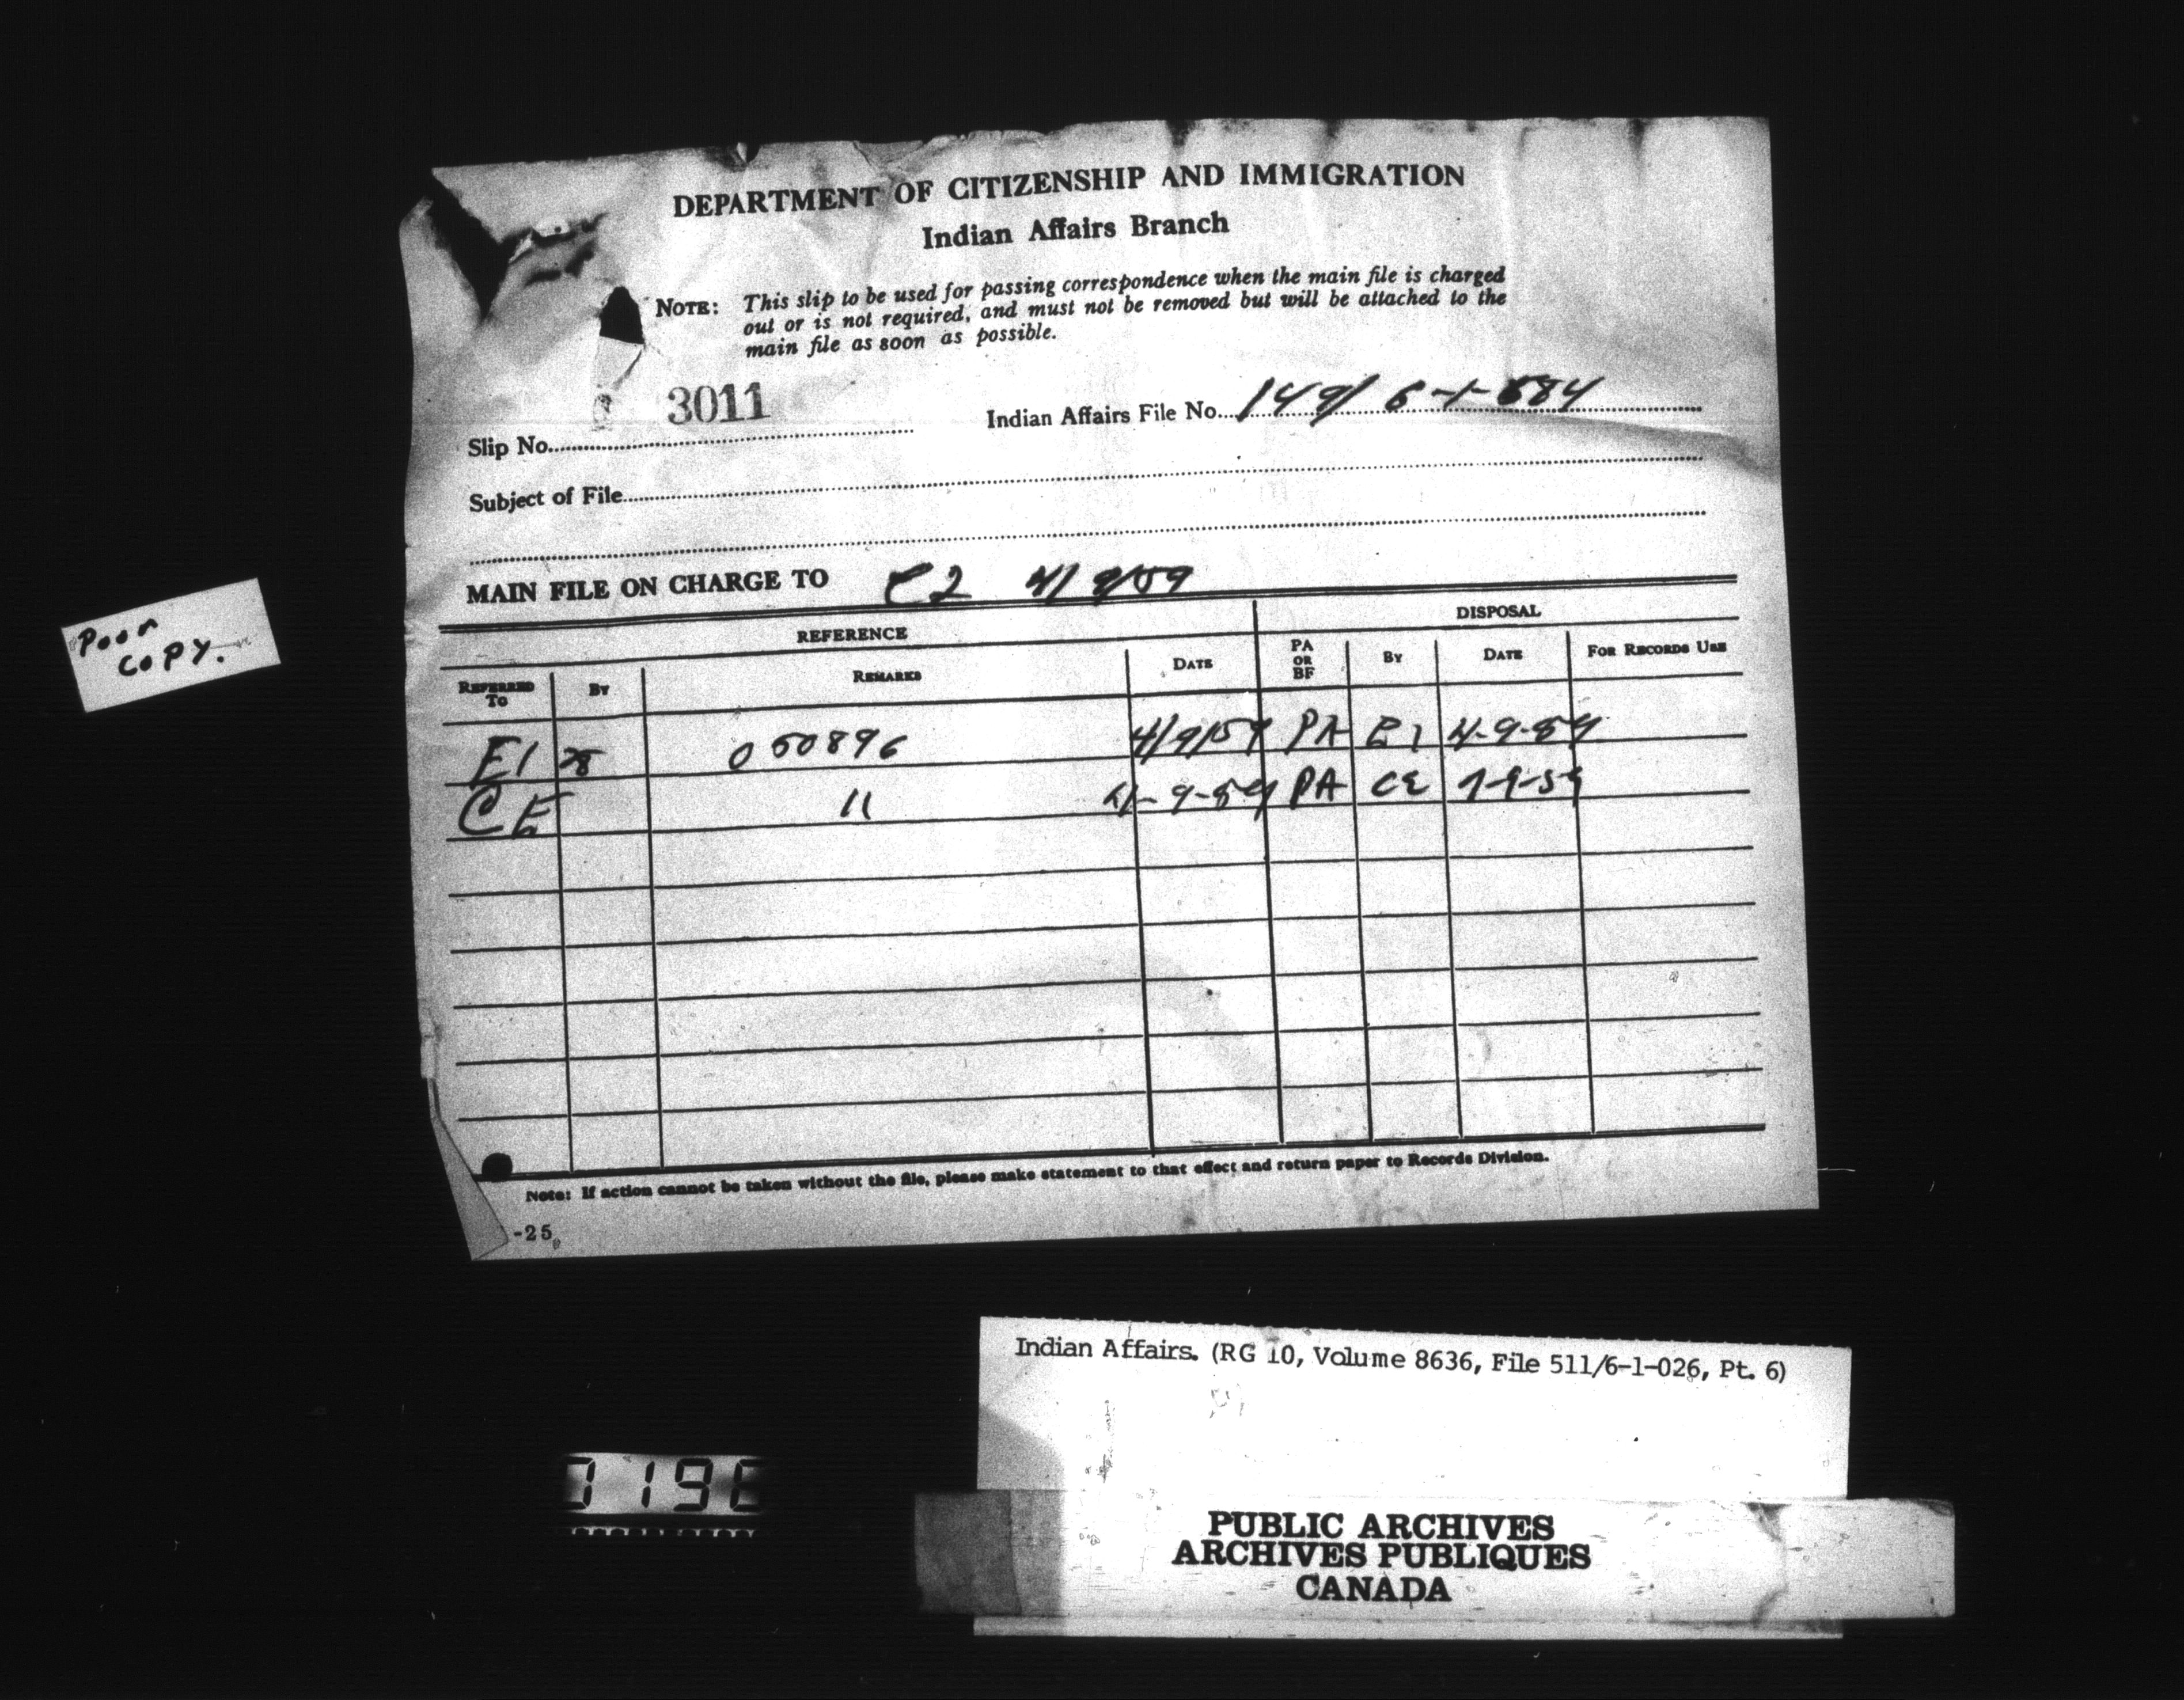 DEPARTMENT OF CITIZENSHIP AND IMMIGRATION
Indian Affairs Branch
NOTE: This slip to be used for passing correspondence when the main file is charged
out or is not required, and must not be removed but will be attached to the
main file as soon as possible.
Slip No. 3011 Indian Affairs File No. 149/ 6-1-
Subject of File
MAIN FILE ON CHARGE TO 4/9/59
REFERENCE DISPOSAL
REFERRED TO BY REMARKS DATE PA OR BF BY DATE FOR RECORDS USE
E1 050896 4/9/59 PA E1 4-9-59
CE 11 4-9-59 PA CE 7-9-59
Note: If action cannot be taken without the file, please make statement to that effect and return paper to Records Division.
-25
Poor
COPY.
Indian Affairs. (RG 10, Volume 8636, File 511/6-1-026, Pt. 6)
PUBLIC ARCHIVES
ARCHIVES PUBLIQUES
CANADA